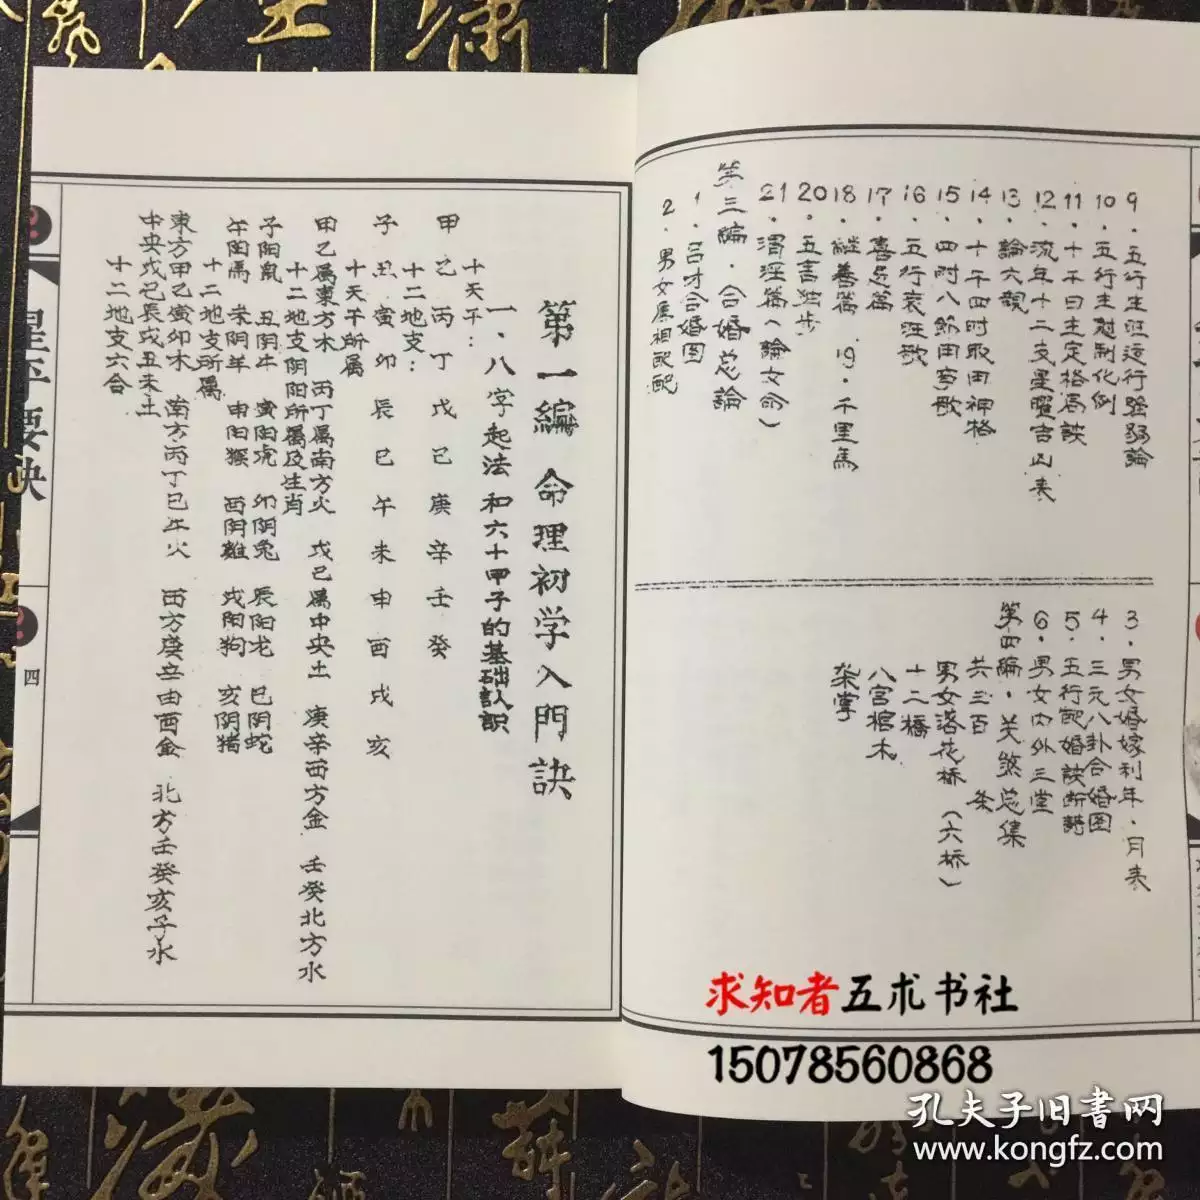 9．五行生旺运行强弱論
10．五行生尅制化例
11．十干日主定格局訣
12．流年十二支星曜吉凶表
13．論六親
14．十干四时取用神格
15．四时八節用事歌
16．五行衰旺歌
17．喜忌篇
18．継善篇　19．千里馬
20．五言独步
21．渭泾篇（論女命）
第三编．合婚总論
1．吕才合婚图
2．男女属相配配
3．男女婚嫁利年．月表
4．三元八卦合婚图
5．五行配婚訣断詩
6．男女内外三堂
第四编．关煞总集
共三百　条
男女落花桥（六桥）
十二橋
八宫棺木
柴掌
第一編　命理初学入門訣
一．八字起法和六十甲子的基础认识
十天干：
甲乙丙丁戊己庚辛壬癸
十二地支：
子丑寅卯辰巳午未申酉戌亥
十天干所属
甲乙属東方木　丙丁属南方火　戊己属中央土　庚辛西方金　壬癸北方水
十二地支阴阳所属及生肖
子阳鼠　丑阴牛　寅阳虎　卯阴兔　辰阳龙　巳阴蛇
午阳馬　未阴羊　申阳猴　酉阴雞　戌阳狗　亥阴猪
十二地支所属
東方甲乙寅卯木　南方丙丁巳午火　西方庚辛申酉金　北方壬癸亥子水
中央戊己辰戌丑未土
十二地支六合
星平要訣
四
求知者五术书社
15078560868
孔夫子旧書网
www.kongfz.com